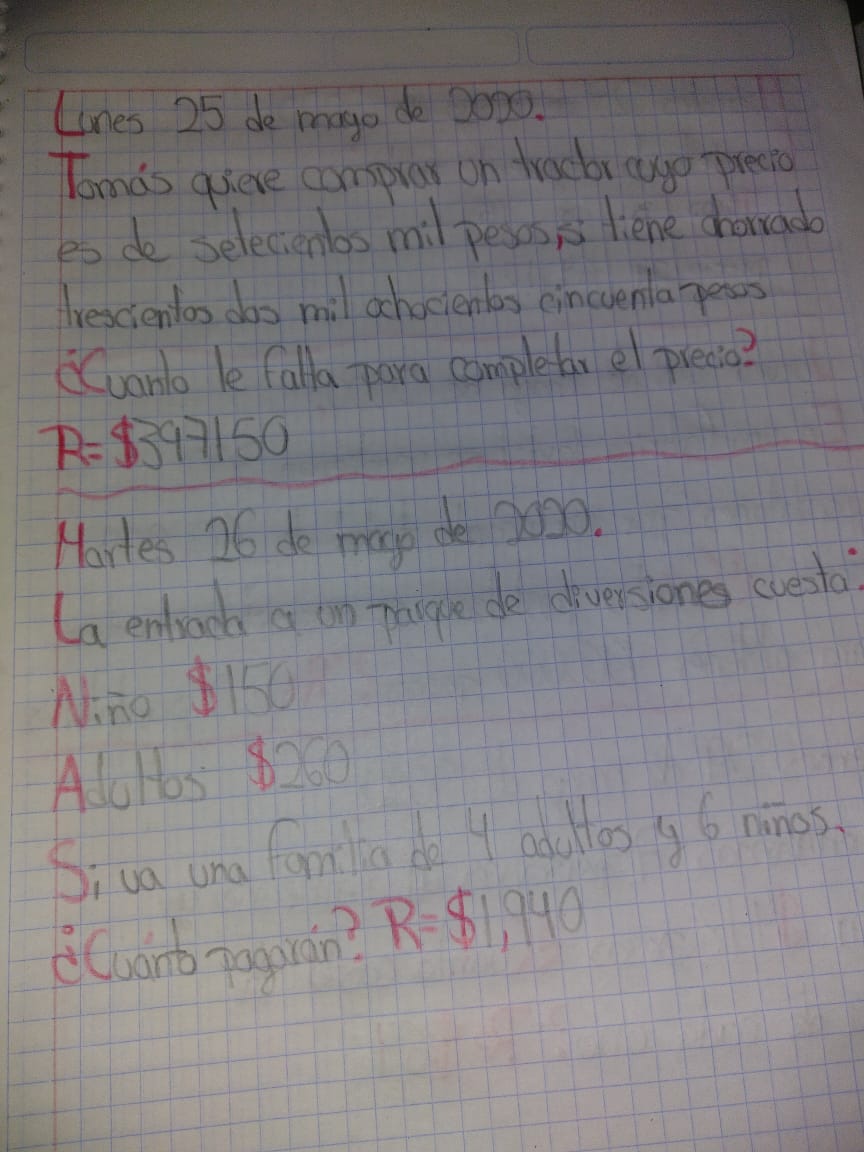 Lunes 25 de mayo de 2020.
Tomás quiere comprar un tractor cuyo precio
es de setecientos mil pesos, si tiene ahorrado
trescientos dos mil ochocientos cincuenta pesos
¿Cuanto le falta para completar el precio?
R=$397150
Martes 26 de mayo de 2020.
La entrada a un parque de diversiones cuesta:
Niño $150
Adultos $260
Si va una familia de 4 adultos y 6 niños.
¿Cuánto pagarán? R=$1,940